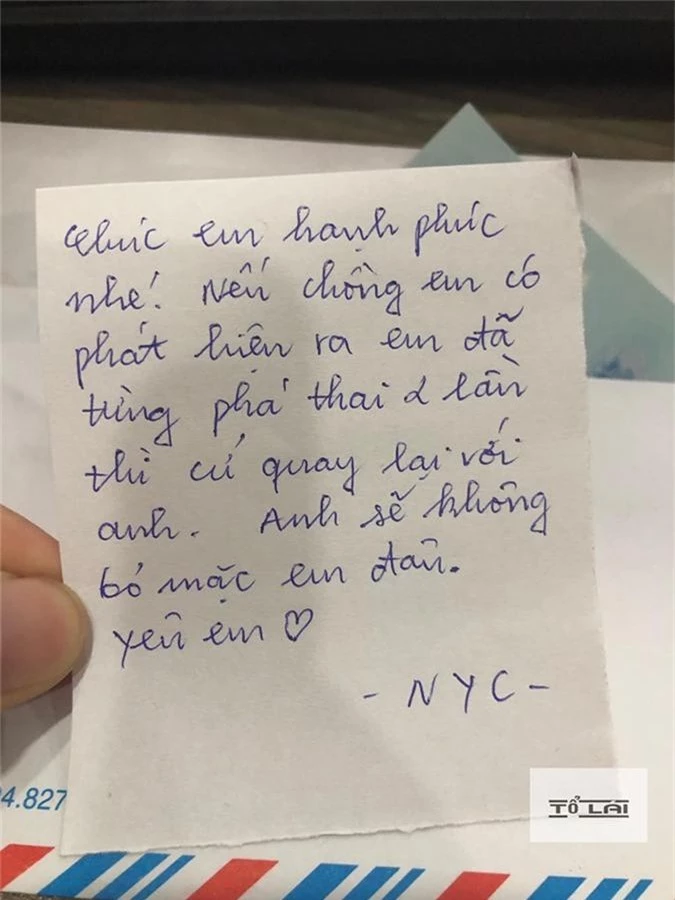 Chúc em hạnh phúc
nhé! Nếu chồng em có
phát hiện ra em đã
từng phá thai 2 lần
thì cứ quay lại với
anh. Anh sẽ không
bỏ mặc em đâu.
Yêu em ♡
- NYC -
4.827
TỔ LÁI